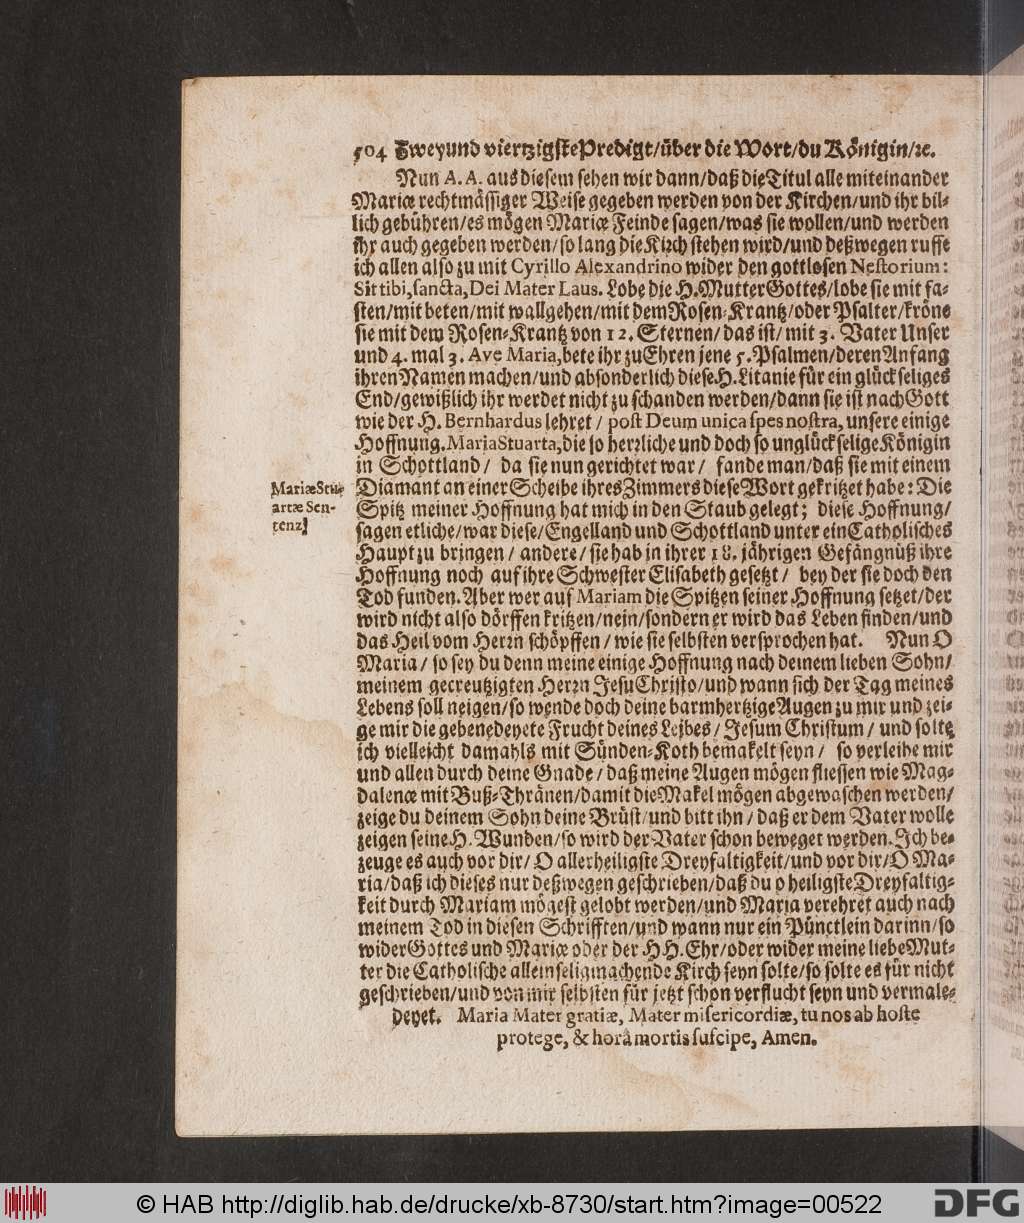 504 Zweyund viertzigste Predigt/über die Wort/du Königin/ꝛc.
Nun A. A. aus diesem sehen wir dann/daß die Titul alle miteinander
Mariæ rechtmässiger Weise gegeben werden von der Kirchen/und ihr bil-
lich gebühren/es mögen Mariæ Feinde sagen/was sie wollen/und werden
ihr auch gegeben werden/so lang die Kirch stehen wird/und deßwegen ruffe
ich allen also zu mit Cyrillo Alexandrino wider den gottlosen Nestorium:
Sit tibi, sancta, Dei Mater Laus. Lobe die H. Mutter Gottes/lobe sie mit fa-
sten/mit beten/mit wallgehen/mit dem Rosen-Krantz/oder Psalter/kröne
sie mit dem Rosen-Krantz von 12. Sternen/das ist/mit 3. Vater Unser
und 4. mal 3. Ave Maria, bete ihr zu Ehren jene 5. Psalmen/deren Anfang
ihren Namen machen/und absonderlich diese H. Litanie für ein glückseliges
End/gewißlich ihr werdet nicht zu schanden werden/dann sie ist nach Gott
wie der H. Bernhardus lehret/ post Deum unica spes nostra, unsere einige
Hoffnung. Maria Stuarta, die so herrliche und doch so unglückselige Königin
in Schottland/ da sie nun gerichtet war/ fande man/daß sie mit einem
Mariæ Stu-
artæ Sen-
tenz.
Diamant an einer Scheibe ihres Zimmers diese Wort gekritzet habe: Die
Spitz meiner Hoffnung hat mich in den Staub gelegt; diese Hoffnung/
sagen etliche/war diese/Engelland und Schottland unter ein Catholisches
Haupt zu bringen/ andere/ sie hab in ihrer 18. jährigen Gefängnüß ihre
Hoffnung noch auf ihre Schwester Elisabeth gesetzt/ bey der sie doch den
Tod funden. Aber wer auf Mariam die Spitzen seiner Hoffnung setzet/der
wird nicht also dörffen kritzen/nein/sondern er wird das Leben finden/und
das Heil vom Herrn schöpffen/ wie sie selbsten versprochen hat. Nun O
Maria/ so sey du denn meine einige Hoffnung nach deinem lieben Sohn/
meinem gecreutzigten Herrn Jesu Christo/und wann sich der Tag meines
Lebens soll neigen/so wende doch deine barmhertzige Augen zu mir und zei-
ge mir die gebenedeyete Frucht deines Leibes/ Jesum Christum/ und solte
ich vielleicht damahls mit Sünden-Koth bemakelt seyn/ so verleihe mir
und allen durch deine Gnade/ daß meine Augen mögen fliessen wie Mag-
dalenæ mit Buß-Thränen/damit die Makel mögen abgewaschen werden/
zeige du deinem Sohn deine Brüst/und bitt ihn/ daß er dem Vater wolle
zeigen seine H. Wunden/so wird der Vater schon beweget werden. Ich be-
zeuge es auch vor dir/ O allerheiligste Dreyfaltigkeit/und vor dir/O Ma-
ria/daß ich dieses nur deßwegen geschrieben/daß du o heiligste Dreyfaltig-
keit durch Mariam mögest gelobt werden/und Maria verehret auch nach
meinem Tod in diesen Schrifften/und wann nur ein Pünctlein darinn/so
wider Gottes und Mariæ oder der HH. Ehr/oder wider meine liebe Mut-
ter die Catholische alleinseligmachende Kirch seyn solte/so solte es für nicht
geschrieben/und von mir selbsten für jetzt schon verflucht seyn und vermale-
deyet. Maria Mater gratiæ, Mater misericordiæ, tu nos ab hoste
protege, & horâ mortis suscipe, Amen.
© HAB http://diglib.hab.de/drucke/xb-8730/start.htm?image=00522
DFG